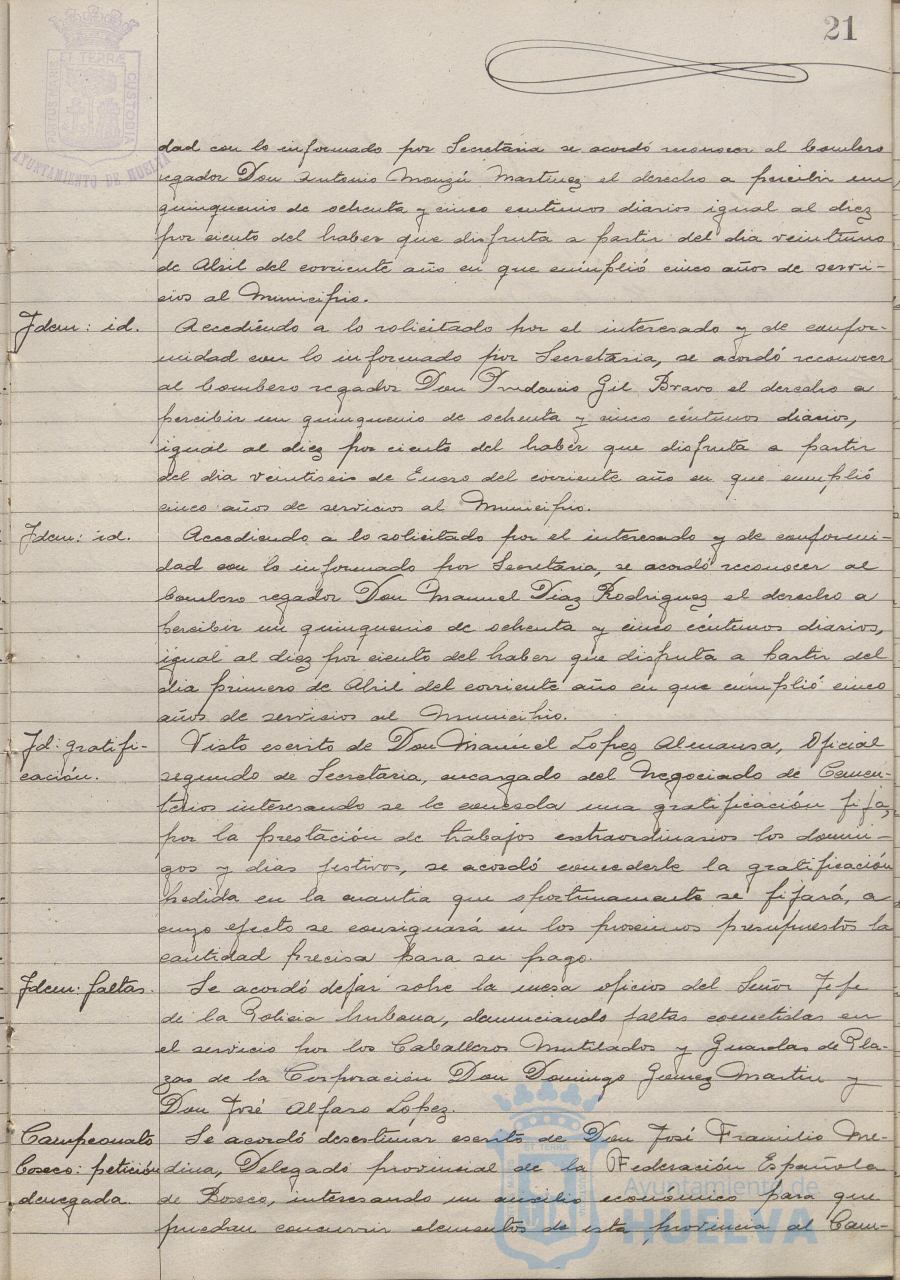 21
PORTUS MARIS ET TERRÆ CUSTODIA
AYUNTAMIENTO DE HUELVA
dad con lo informado por Secretaria se acordó reconocer al bombero
regador Don Antonio Monzú Martinez el derecho a percibir un
quinquenio de ochenta y cinco centimos diarios igual al diez
por ciento del haber que disfruta a partir del dia veintiuno
de Abril del corriente año en que cumplió cinco años de servi-
cios al Municipio.
Idem: id. Accediendo a lo solicitado por el interesado y de confor-
midad con lo informado por Secretaria, se acordó reconocer
al bombero regador Don Prudencio Gil Bravo el derecho a
percibir un quinquenio de ochenta y cinco céntimos diarios,
igual al diez por ciento del haber que disfruta a partir
del dia veintiseis de Enero del corriente año en que cumplió
cinco años de servicios al Municipio.
Idem: id. Accediendo a lo solicitado por el interesado y de conformi-
dad con lo informado por Secretaria, se acordó reconocer al
bombero regador Don Manuel Diaz Rodriguez el derecho a
percibir un quinquenio de ochenta y cinco céntimos diarios,
igual al diez por ciento del haber que disfruta a partir del
dia primero de Abril del corriente año en que cumplió cinco
años de servicios al Municipio.
Id: gratifi- Visto escrito de Don Manuel Lopez Almansa, Oficial
cación. segundo de Secretaria, encargado del Negociado de Cemen-
terios interesando se le conceda una gratificación fija,
por la prestación de trabajos extraordinarios los domin-
gos y dias festivos, se acordó concederle la gratificación
pedida en la cuantia que oportunamente se fijará, a
cuyo efecto se consignará en los proximos presupuestos la
cantidad precisa para su pago.
Idem: faltas. Se acordó dejar sobre la mesa oficios del Señor Jefe
de la Policia Urbana, denunciando faltas cometidas en
el servicio por los Caballeros Mutilados y Guardas de Pla-
zas de la Corporación Don Domingo Gomez Martin y
Don José Alfaro Lopez.
Campeonato Se acordó desestimar escrito de Don José Framilio Me-
boxeo: petición dina, Delegado provincial de la Federación Española
denegada. de Boxeo, interesando un auxilio económico para que
puedan concurrir elementos de esta provincia al Cam-
Ayuntamiento de
HUELVA